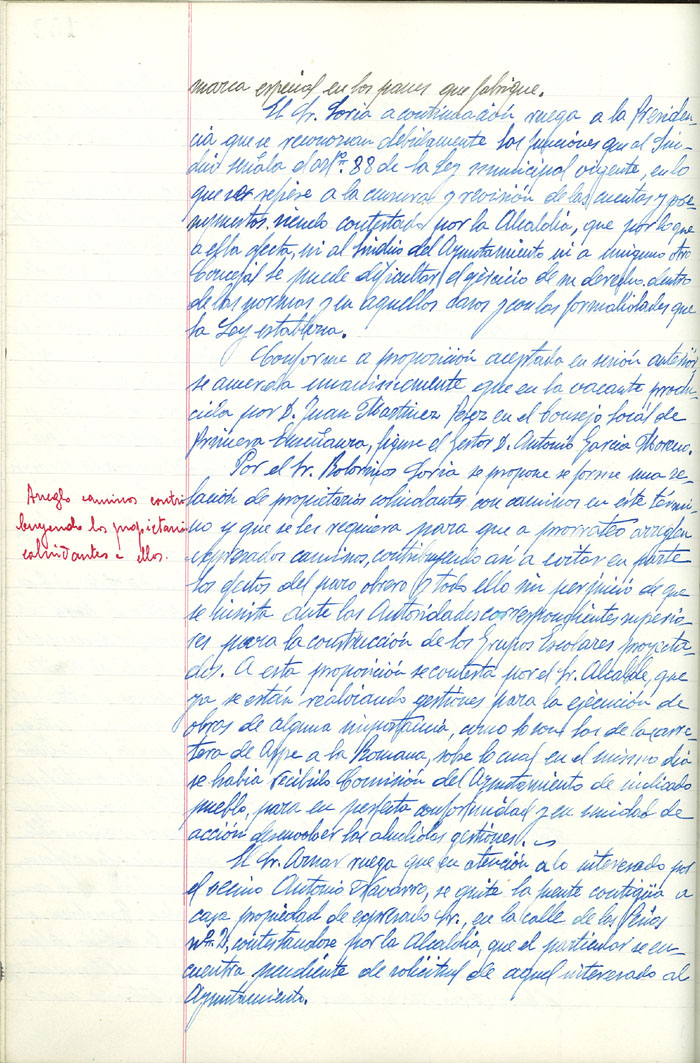 marca especial en los panes que fabrique.
El Sr. Soria a continuación ruega a la Presiden-
cia que se reconozcan debidamente las funciones que al Sín-
dico señala el artº. 88 de la Ley municipal vigente, en lo
que se refiere a la censura y revisión de las cuentas y pre-
supuestos, siendo contestado por la Alcaldía, que por lo que
a ella afecta, ni al Síndico del Ayuntamiento ni a ninguno otro
Concejal se puede dificultar el ejercicio de su derecho, dentro
de las normas y en aquellos casos y con las formalidades que
la Ley establezca.
Conforme a proposición aceptada en sesión anterior,
se acuerda unanimemente que en la vacante produ-
cida por D. Juan Martinez Perez en el Consejo Local de
Primera Enseñanza, figure el Gestor D. Antonio Garcia Moreno.
Por el Sr. Soria se propone se forme una re-
Arreglo caminos contri
lación de propietarios colindantes con caminos en este térmi-
buyendo los propietarios
no y que se les requiera para que a prorrateo arreglen
colindantes a ellos.
expresados caminos, contribuyendo así a evitar en parte
los efectos del paro obrero y todo ello sin perjuicio de que
se insista ante las Autoridades correspondientes superio-
res para la construcción de los Grupos Escolares proyecta-
dos. A esta proposición se contesta por el Sr. Alcalde, que
ya se están realizando gestiones para la ejecución de
obras de alguna importancia, como lo son las de la carre-
tera de Aspe a la Romana, sobre lo cual en el mismo día
se había recibido Comisión del Ayuntamiento de indicado
pueblo, para en perfecta conformidad y en unidad de
acción desenvolver las aludidas gestiones.
El Sr. Aznar ruega que en atención a lo interesado por
el vecino Antonio Navarro, se quite la fuente contigüa a
casa propiedad de expresado Sr., en la calle de las
nº. 2, contestandose por la Alcaldía, que el particular se en-
cuentra pendiente de solicitud de aquel interesado al
Ayuntamiento.